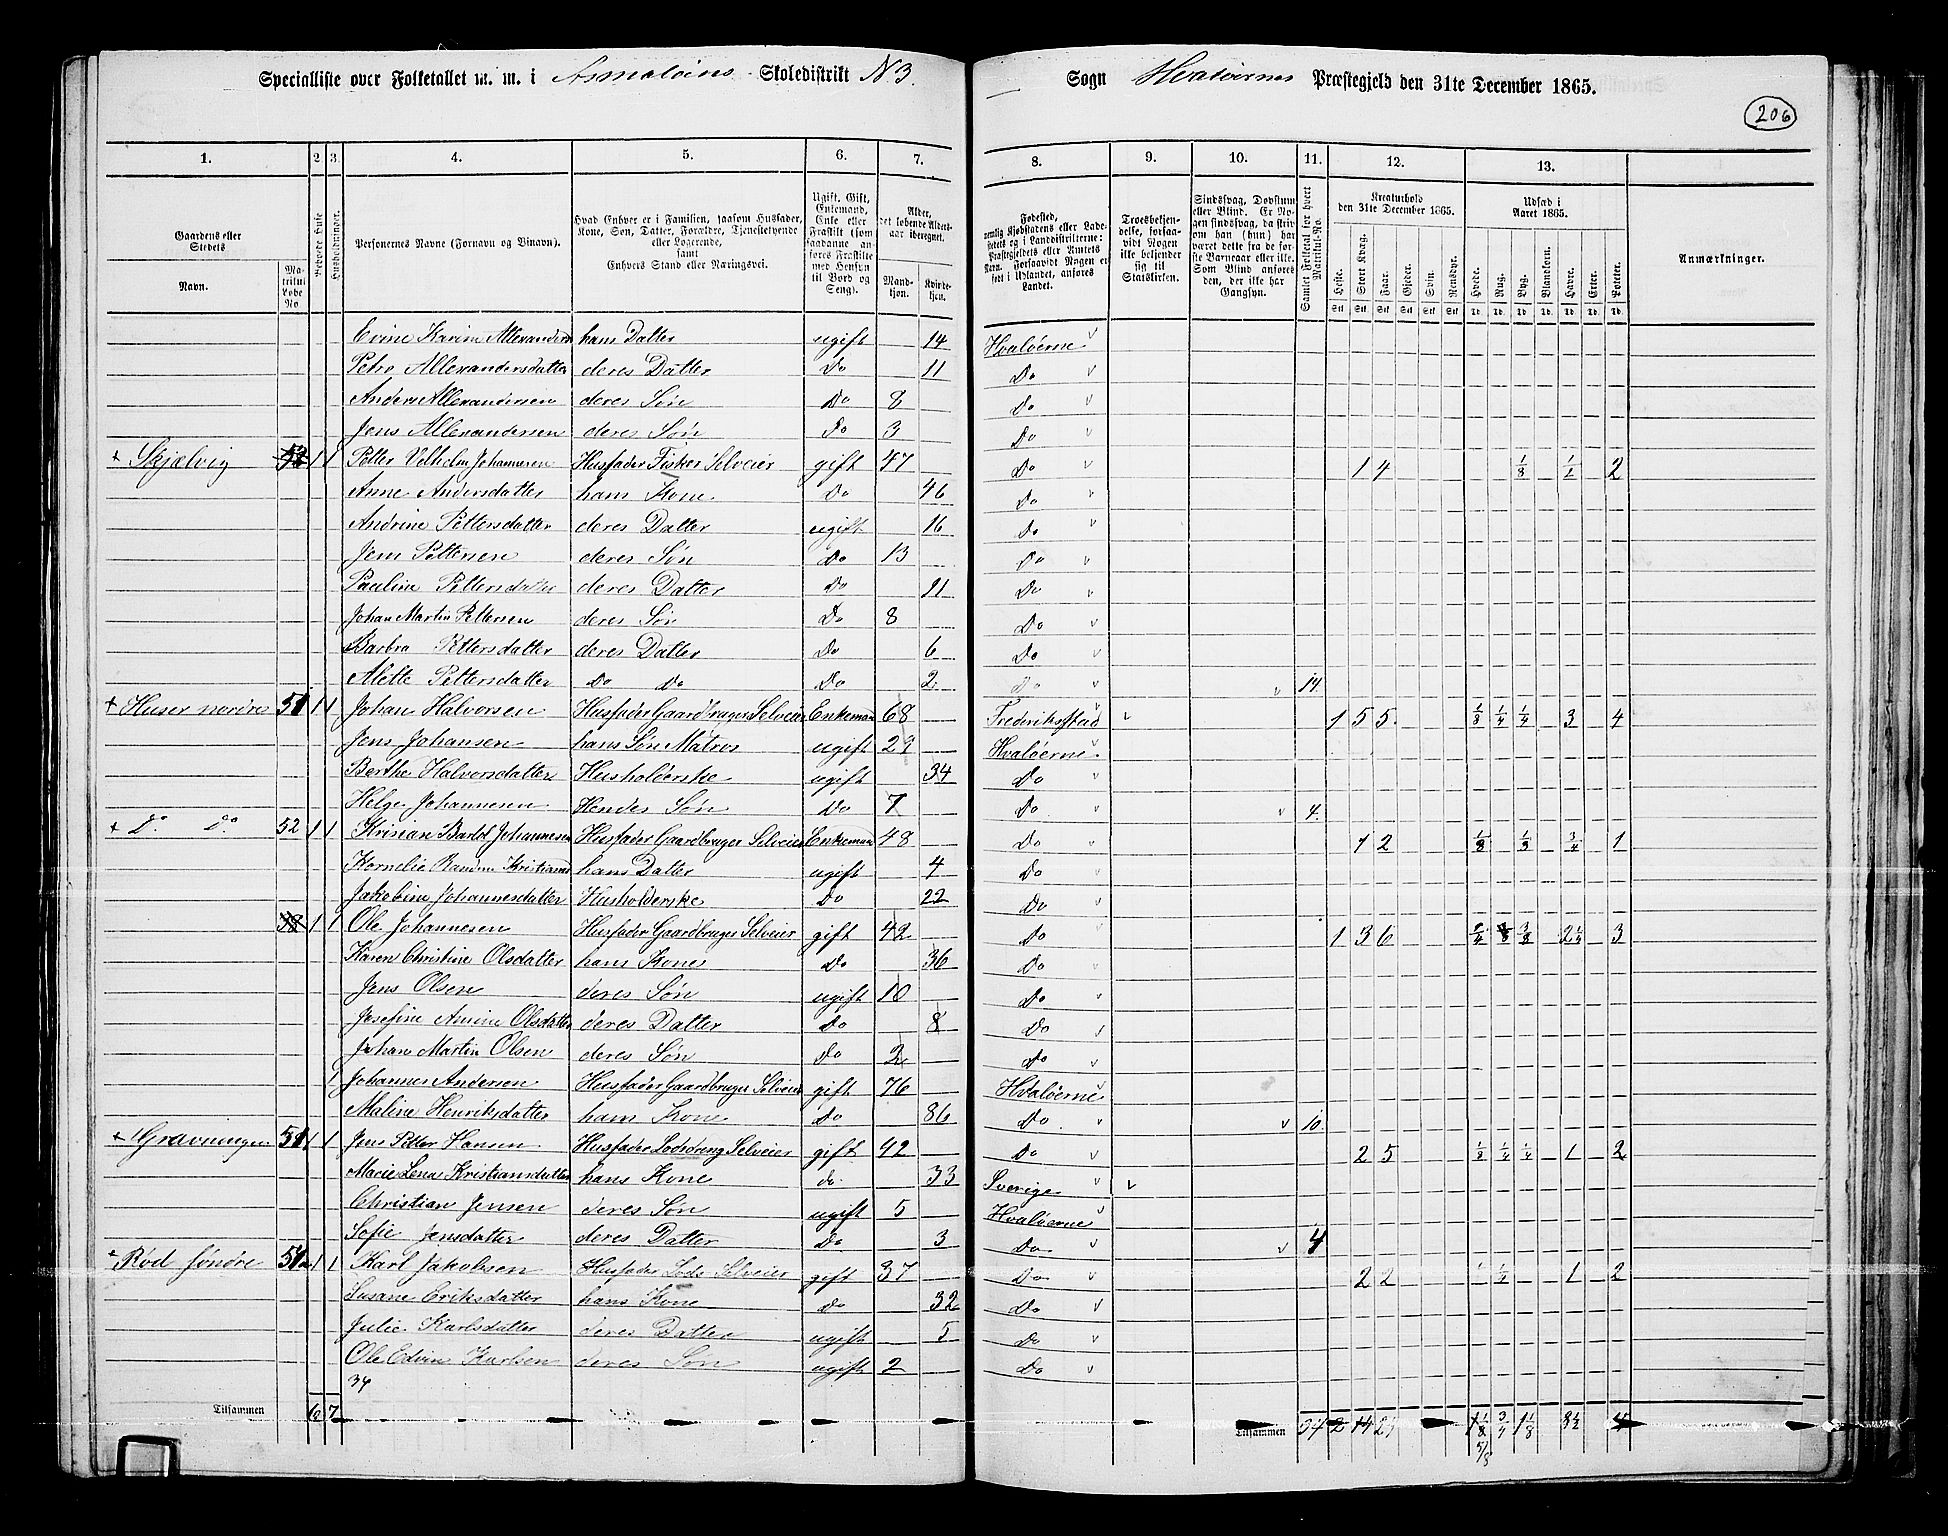 Specialliste over Folketallet m. m. i Asmaløens Skoledistrikt N 3. Sogn Hvaløernes Præstegjeld den 31te December 1865.
206
1. 2. 3. 4. 5. 6. 7. 8. 9. 10. 11. 12. 13.
Gaardens eller Stedets Navn. Matrikul Løbe No Beboede Huse Husholdninger. Personernes Navne (Fornavn og Tilnavn). Hvad Enhver er i Familien, saasom Husfader, Kone, Søn, Datter, Forældre, Tjenestetyende eller Logerende, samt Enhvers Stand eller Næringsvei. Ugift, Gift, Enkemand, Enke eller Fraskilt (som saadanne anføres Fraskilte med Hensyn til Bord og Seng). Alder, det løbende Aldersaar iberegnet. Mandkjøn. Kvindekjøn. Fødested, Troesbekjendelse, forsaavidt Nogen ikke bekjender sig til Statskirken. Sindssvag, Døvstum eller Blind. Samlet Folketal for hvert Matrikul-No. Kreaturhold den 31te December 1865. Heste. Stort Kvæg. Faar. Gjeder. Svin. Rensdyr. Udsæd i Aaret 1865. Hvede. Rug. Byg. Blandkorn. Havre. Erter. Poteter. Anmærkninger.
Evine Karine Allexanders hans Datter ugift 14 Hvaløerne
Petra Allexandersdatter deres Datter Do 11 Do
Anders Allexandersen deres Søn Do 8 Do
Jens Allexandersen deres Søn Do 3 Do
+ Skjælvig 1 1 Petter Velhelm Johannesen Husfader Fisker Selveier gift 47 Do 1 4 1/8 1/1 2
Anne Andersdatter hans Kone Do 46 Do
Andrine Pettersdatter deres Datter ugift 16 Do
Jens Pettersen deres Søn Do 13 Do
Pauline Pettersdatter deres Datter Do 11 Do
Johan Martin Pettersen deres Søn Do 8 Do
Barbra Pettersdatter deres Datter Do 6 Do
Alette Pettersdatter Do Do Do 2 Do 14
+ Huser nordre 51 1 1 Johan Halvorsen Husfader Gaardbruger Selveier Enkemand 68 Frederiksstad 1 5 5 1/8 1/4 1/4 3 4
Jens Johansen hans Søn Matros ugift 29 Hvaløerne
Berthe Halvorsdatter Husholderske ugift 34 Do
Helge Johannesen Hendes Søn Do 7 Do 4
+ Do Do 52 1 1 Krisian Bartol Johannesen Husfader Gaardbruger Selveier Enkemand 48 Do 1 2 1/8 1/8 3/4 1
Kornelie Randine Kristians hans Datter ugift 4 Do
Jakobine Johannesdatter Husholderske Do 22 Do
1 1 Ole Johannesen Husfader Gaardbruger Selveier gift 42 Do 1 3 6 3/8 2 1/4 3
Karen Christine Olsdatter hans Kone Do 36 Do
Jens Olsen deres Søn ugift 10 Do
Josefine Amine Olsdatter deres Datter Do 8 Do
Johan Martin Olsen deres Søn Do 2 Do
1 Johannes Andersen Husfader Gaardbruger Selveier gift 76 Hvaløerne
Maline Henriksdatter hans Kone Do 86 Do 10
+ Gravningen 51 1 1 Jens Petter Hansen Husfader Selveier gift 42 Do 2 5 1/8 1/4 1/4 1 2
Marie Lena Kristiansdatter hans Kone do 33 Sverige
Christian Jensen deres Søn ugift 5 Hvaløerne
Sofie Jensdatter deres Datter Do 3 Do 4
+ Rød søndre 1 1 Karl Jakobsen Husfader Lods Selveier gift 37 Do 2 2 1/4 1 2
Susane Eriksdatter hans Kone Do 32 Do
Julie Karlsdatter deres Datter ugift 5 Do
Ole Edvin Karlsen deres Søn ugift 2 Do
34
Tilsammen 6 7 Tilsammen 34 2 14 1 1/8 3/4 1 1/8 8 1/2
5/8